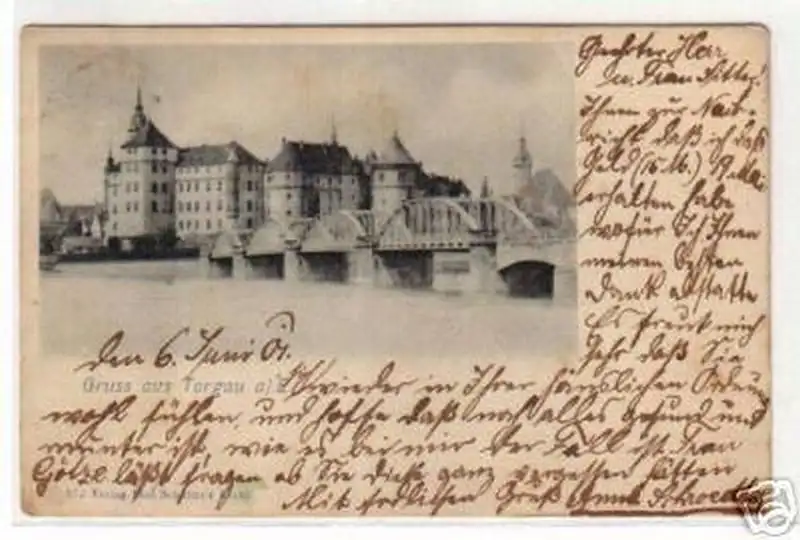 Geehrter Herr
u. Frau Ritter!
Ihnen zur Nach-
richt daß ich daß
Geld (15 M.)
erhalten habe
wofür Ich Ihnen
meinen besten
Dank abstatte
Es freut mich
sehr daß Sie
den 6. Juni 01.
Gruss aus Torgau a/E
sich wieder in Ihrer häuslichen Ordnung
wohl fühlen und hoffe daß noch alles gesund und
munter ist, wie es bei mir der Fall ist. Frau
Götze läßt fragen ob Sie dieße ganz vergessen hätten
Mit herzlichen Gruß Anna